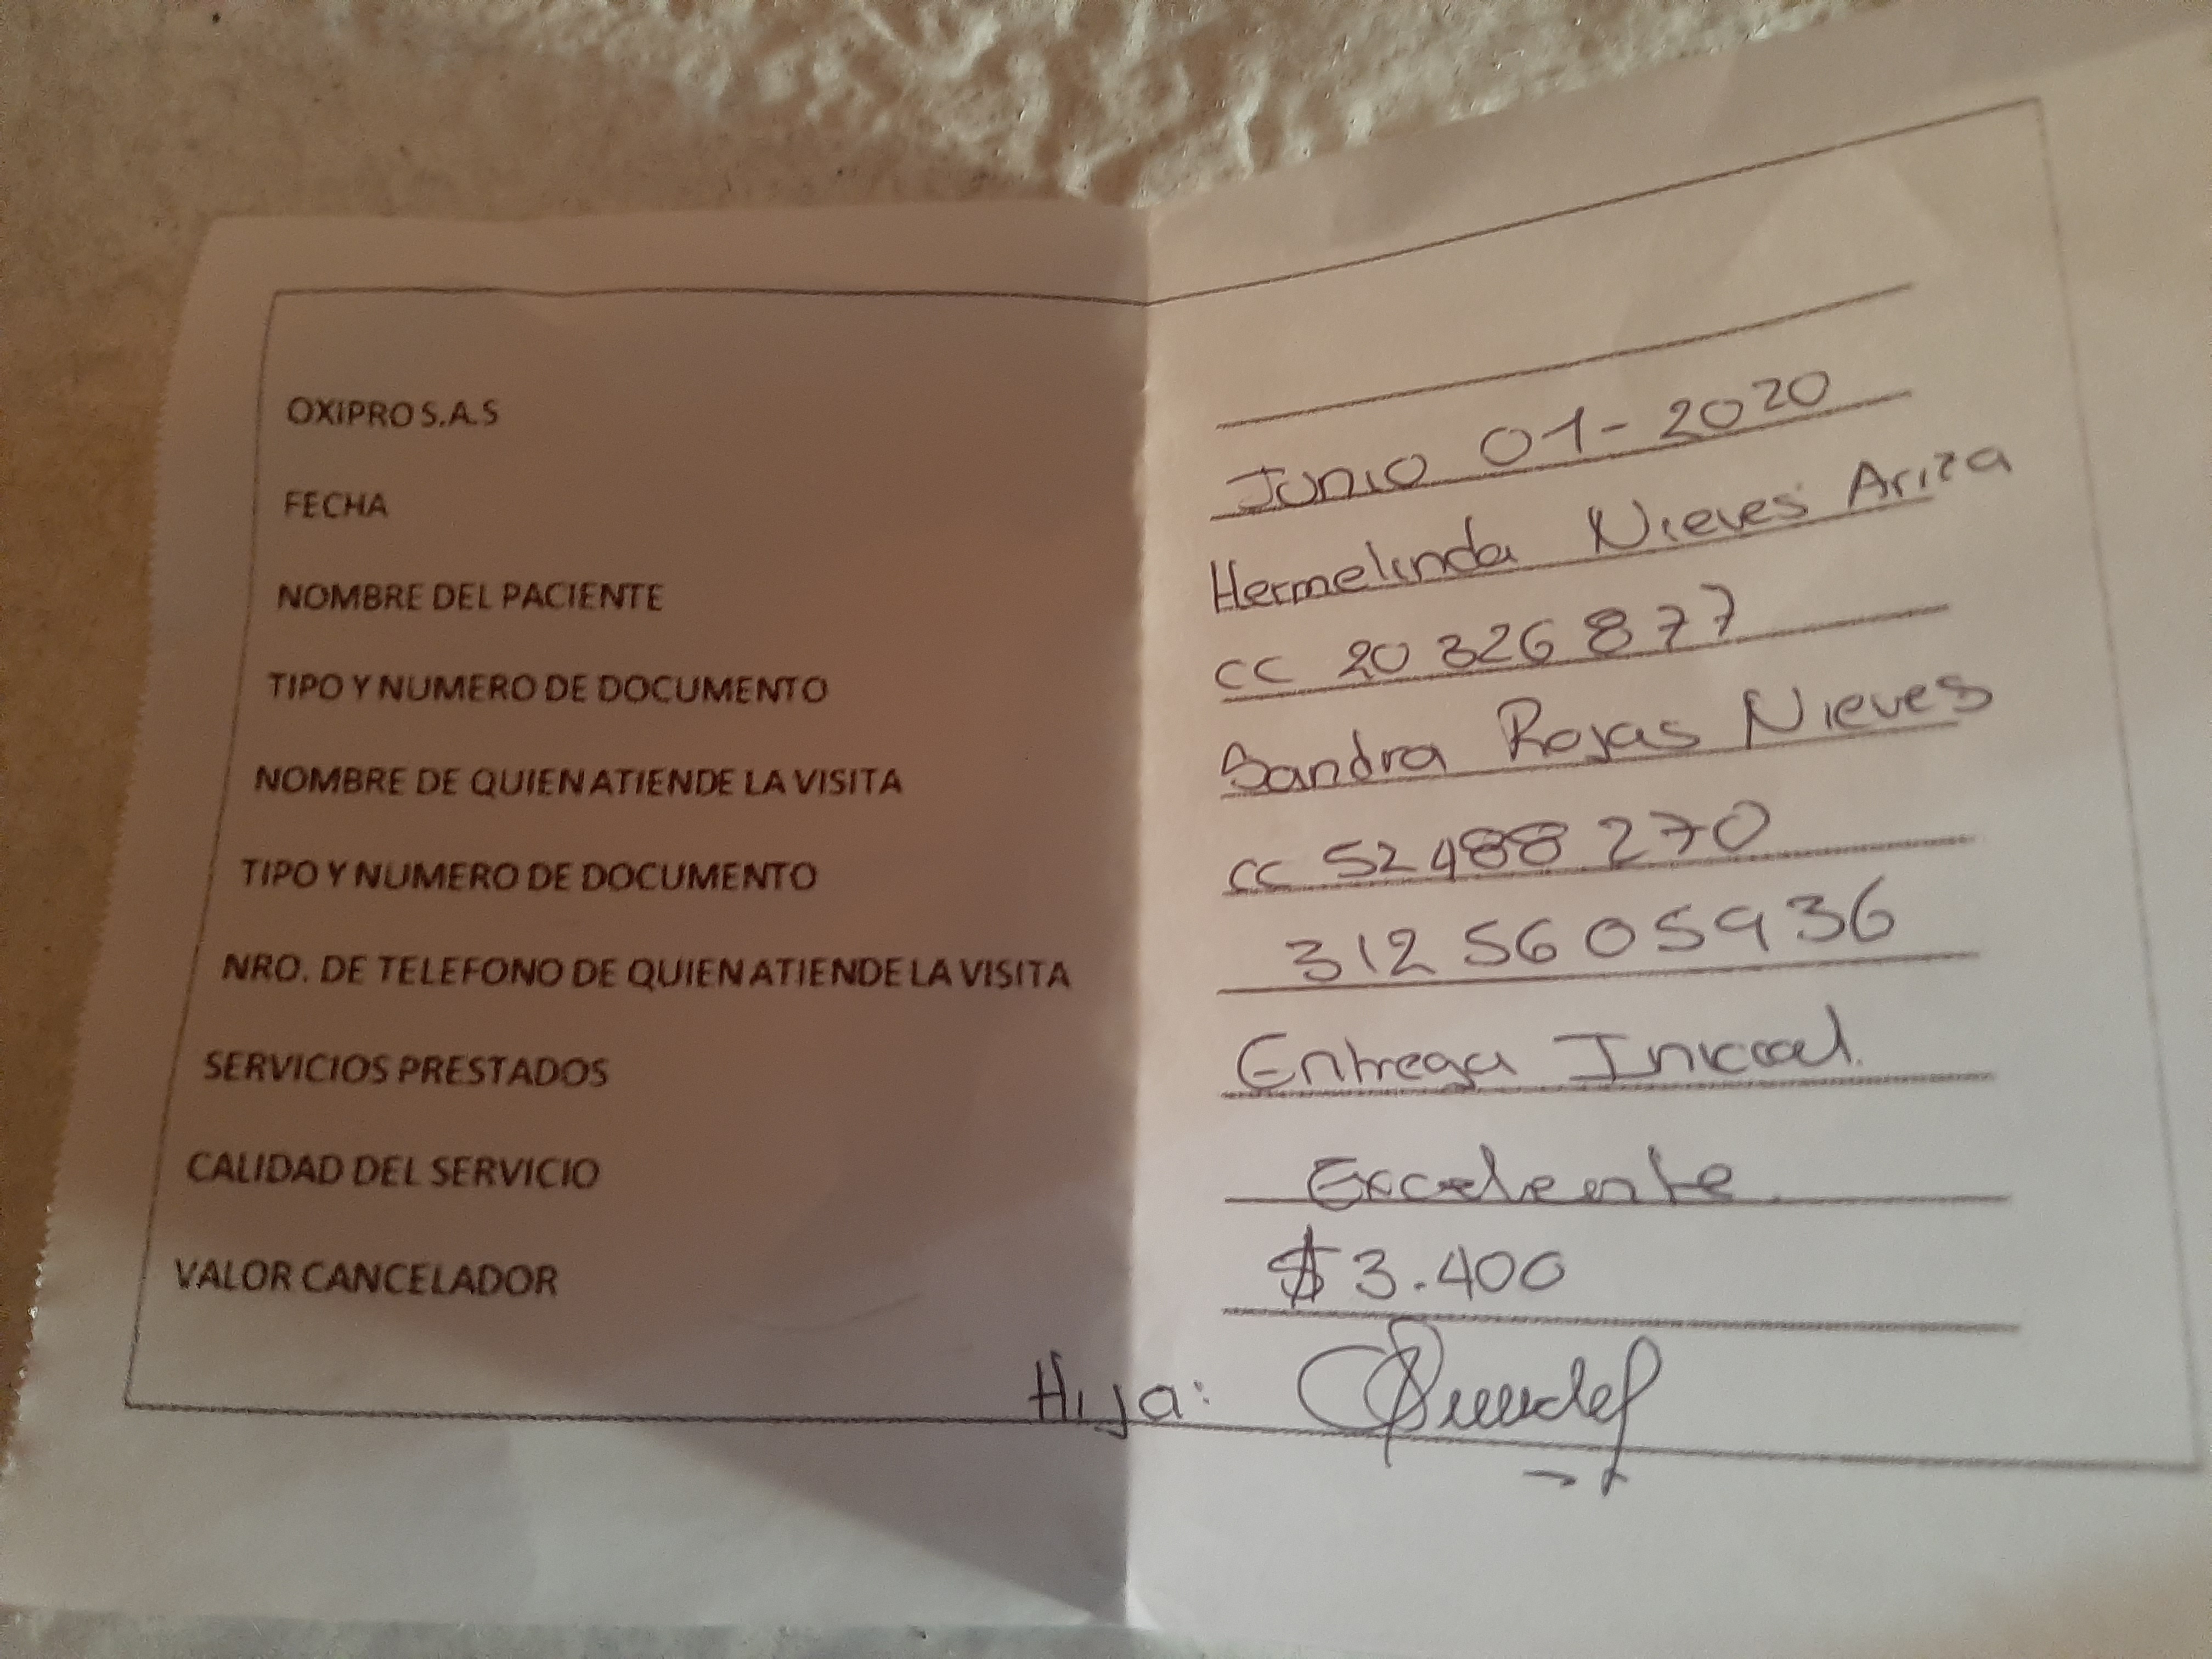 OXIPRO S.A.S
FECHA Junio 01-2020
NOMBRE DEL PACIENTE Hermelinda Nieves Ariza
TIPO Y NUMERO DE DOCUMENTO CC 20 326 877
NOMBRE DE QUIEN ATIENDE LA VISITA Sandra Rojas Nieves
TIPO Y NUMERO DE DOCUMENTO CC 52 488 270
NRO. DE TELEFONO DE QUIEN ATIENDE LA VISITA 312 56 05936
SERVICIOS PRESTADOS Entrega Inicial.
CALIDAD DEL SERVICIO Excelente.
VALOR CANCELADOR $3.400
Hija: